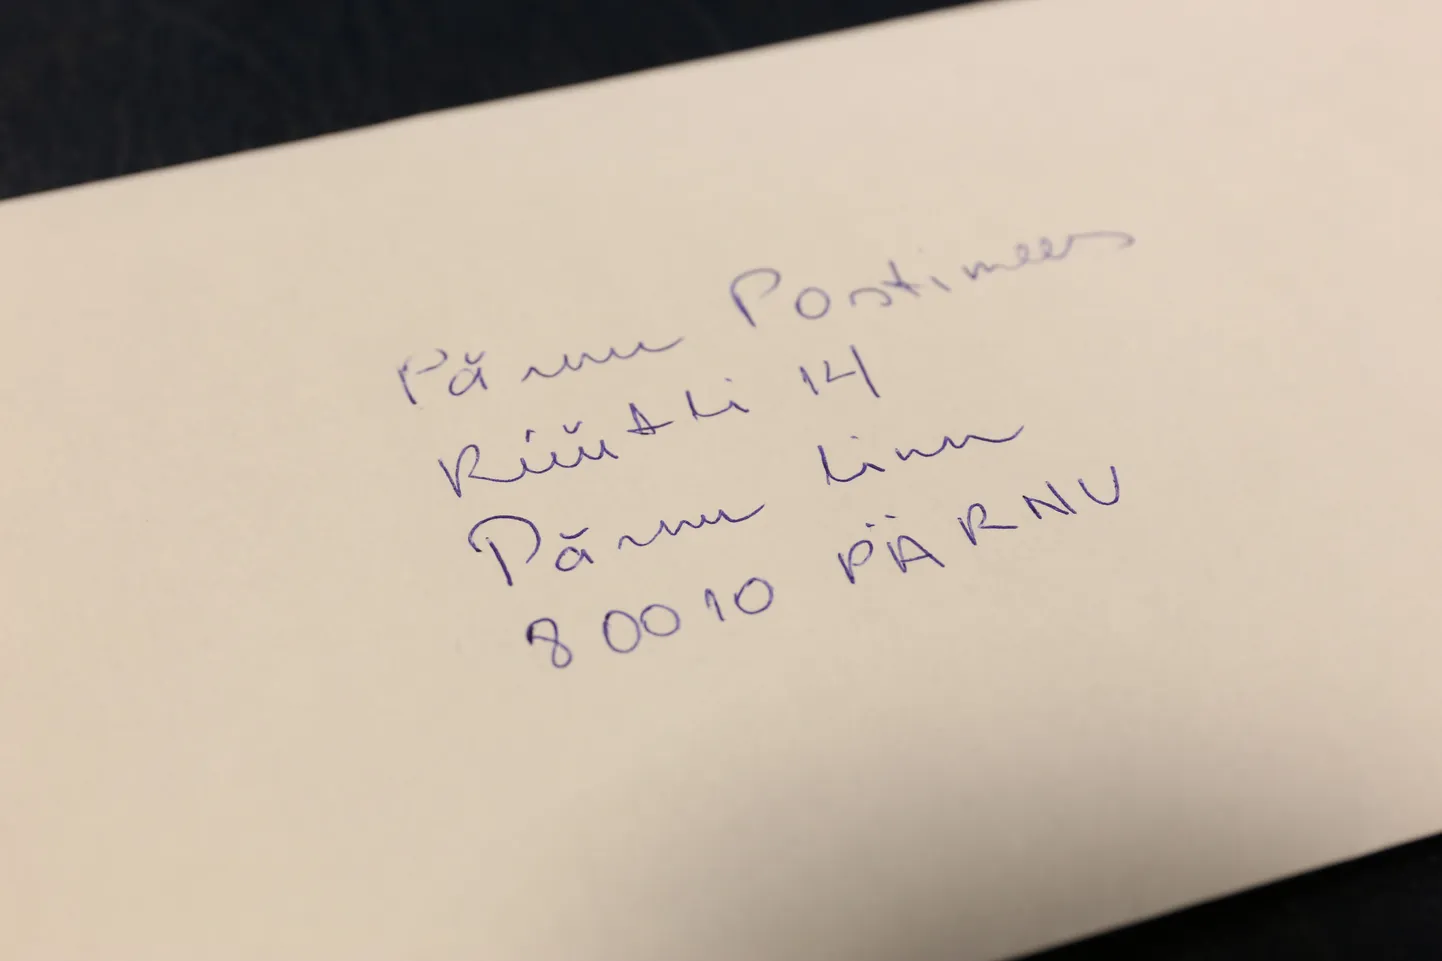 Pärnu Postimees
Rüütli 14
Pärnu linn
80010 PÄRNU